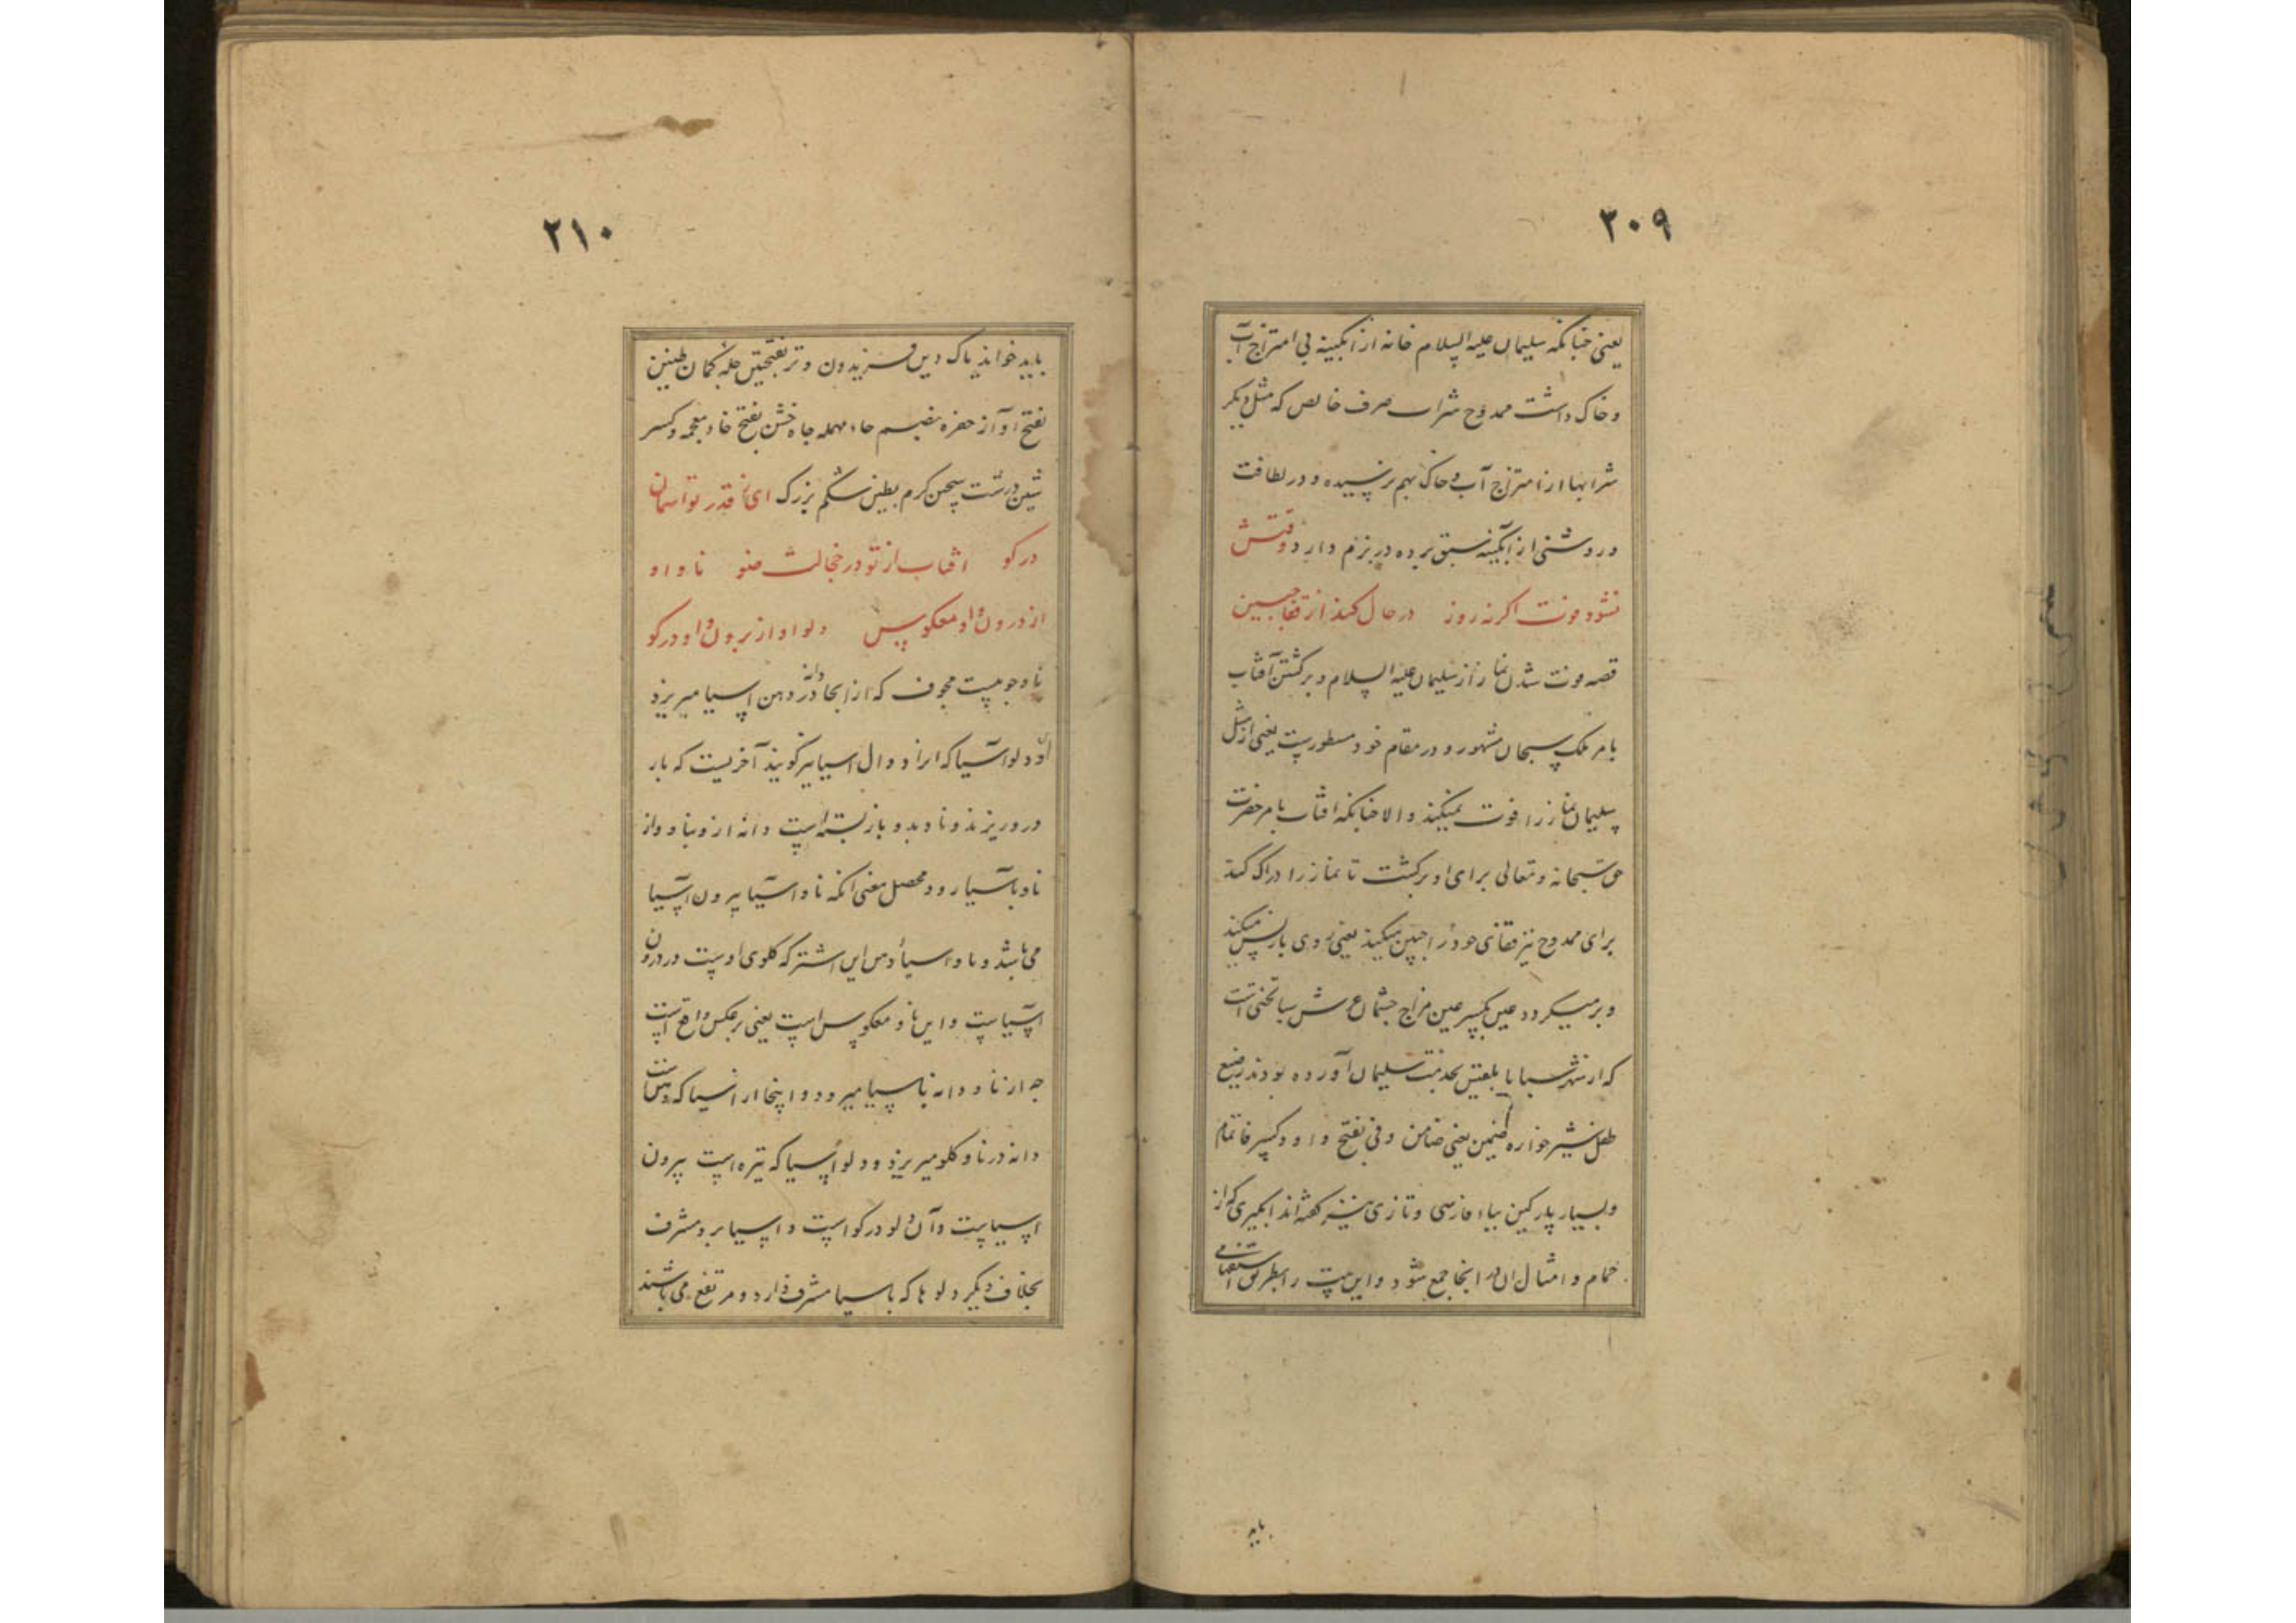 ۲۰۹
یعنی چنانکه سلیمان علیه السلام خانه از آبکینه بی امتزاج آب
و خاک داشت ممدوح شراب صرف خالص که مثل دیکر
شرابها از امتزاج آب و خاک بهم نرسیده و در لطافت
و روشنی از آبکینه سبق برده در بزم دارد وقتش
نشود فوت اکر نه روز در حال کند از قفا جبین
قصه فوت شدن نماز از سلیمان علیه السلام و برکشتن آفتاب
بامر ملک سبحان مشهور و در مقام خود مسطورست یعنی از مثل
سلیمان نماز را فوت نمیکند و الا چنانکه افتاب بامر حضرت
حق سبحانه و تعالی برای او برکشت تا نماز را ادراک کند
برای ممدوح نیز قفای خود را جبین میکند یعنی روی باز پس میکند
و برمیکردد عین بکسر عین فراخ چشمان عرش سبا تختی است
که از شهر سبا با بلقیس بخدمت سلیمان آورده بودند رضیع
طفل شیر خواره ضمین یعنی ضامن وفی بفتح واو و کسر فا تمام
و بسیار پارکین بباء فارسی و تازی نیز کفته اند ابکیری که از
حمام و امثال ان در انجا جمع شود و این بیت را بطریق استفهامی
باید
۲۱۰
باید خواند پاک دین فریدون وتر بفتحتین چله کمان طنین
بفتح اواز حفره بضم حاء مهمله چاه خشن بفتح خاء معجمه و کسر
شین درشت سخن کرم بطین شکم بزرک ای ز قدر تو آسمان
در کو افتاب از تو در خجالت ضو ناو او
از درون و او معکوس دلو او از برون و او در کو
ناو چوبیست مجوف که از انجا دانه در دهن اسیا میریزد
و دلو آسیا که انرا دوال اسیا نیز کویند آخریست که بار
در و ریزند و ناو بدو باز بسته است دانه از و بناو و از
ناو بآسیا رود محصل معنی آنکه ناو آسیا بیرون اسیا
می باشد و ناو اسیاء دهن این اشتر که کلوی اوست در درون
آسیاست و این ناو معکوس است یعنی بر عکس واقع است
چه از ناو دانه باسیا میرود و اینجا از اسیا که دهن است
دانه در ناو کلو میریزد و دلو اسیا که تیره است بیرون
اسیاست و آن دلو در کو است و اسیا برو مشرف
بخلاف دیکر دلو ها که باسیا مشرف دارد و مرتفع می باشند